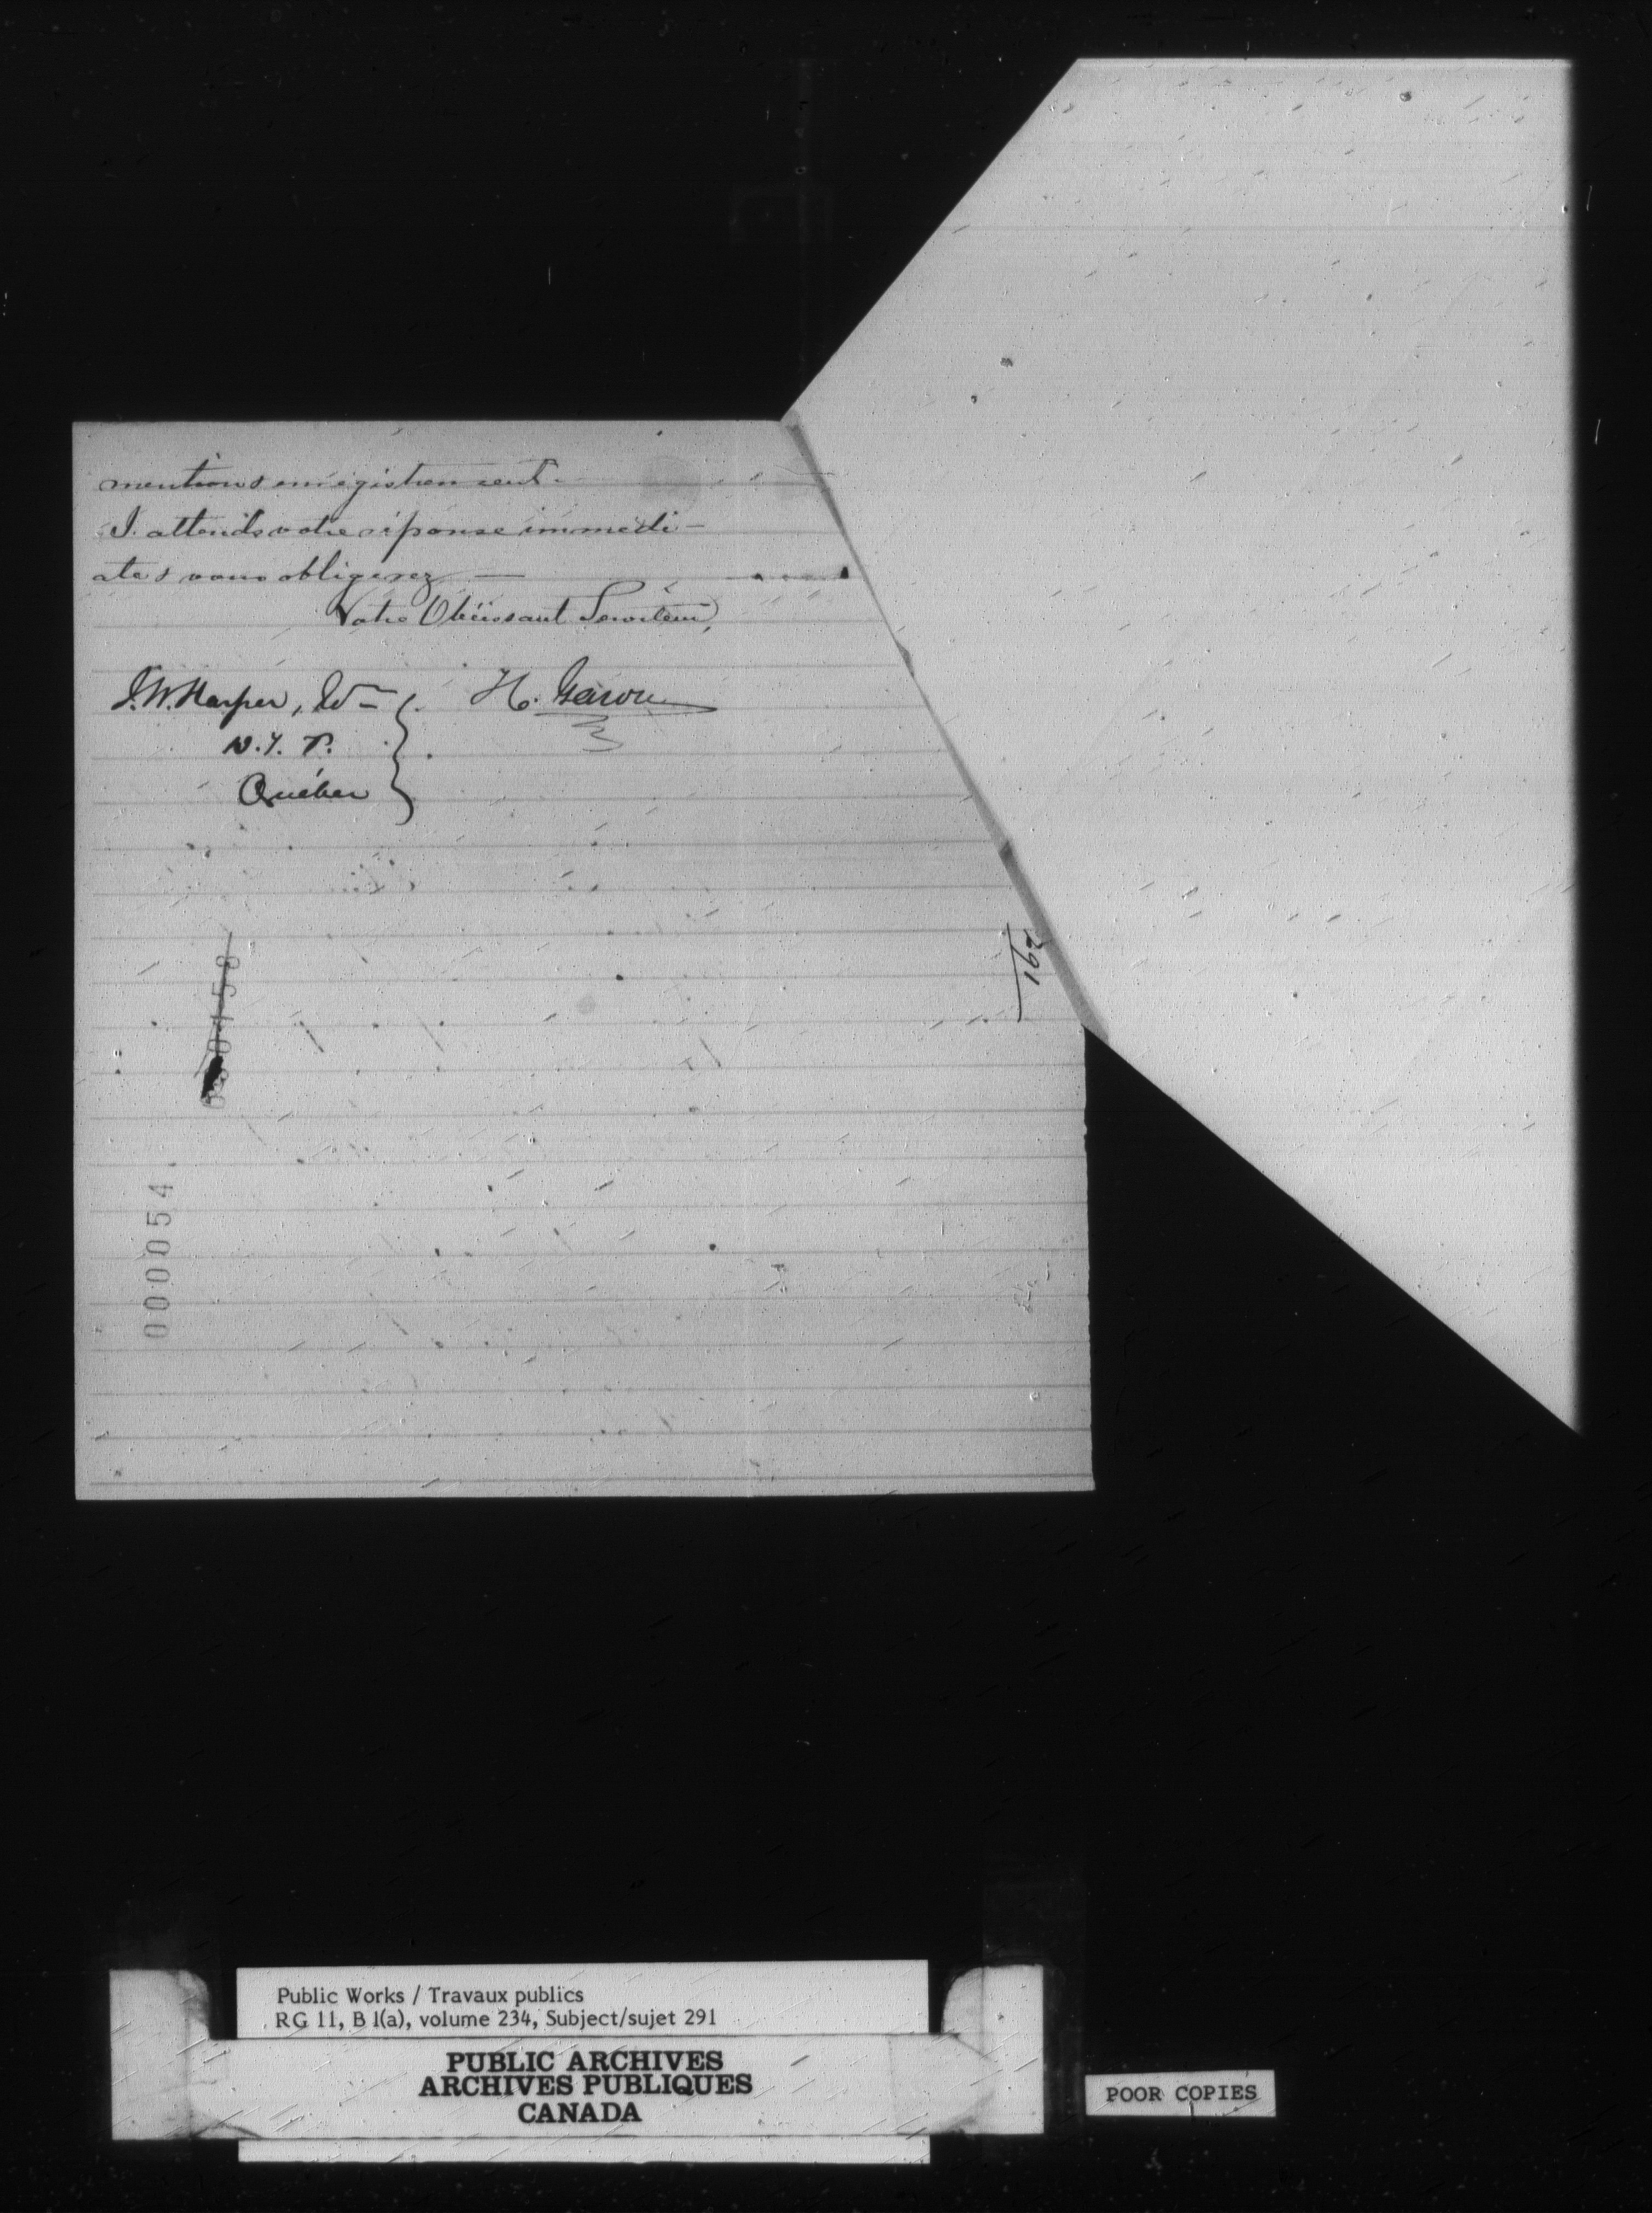 mentions enrégistrement.
J. attends votre réponse immédi-
ate & vous obligerez —
Votre Obéissant Serviteur,
J. W. Harper,
H. Garon
N. Y. P.
Québec
162
000054
Public Works / Travaux publics
RG 11, B 1(a), volume 234, Subject/sujet 291
PUBLIC ARCHIVES
ARCHIVES PUBLIQUES
CANADA
POOR COPIES